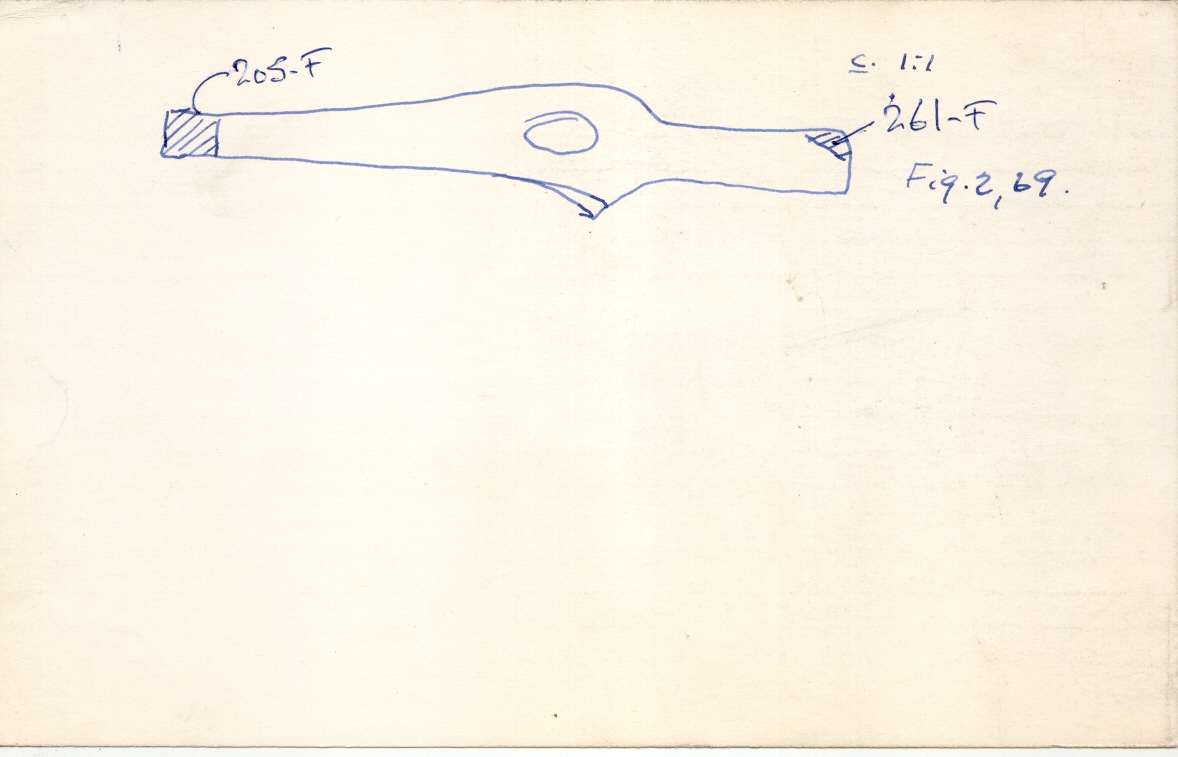 205-F
c. 1:1
261-F
Fig. 2, 69.